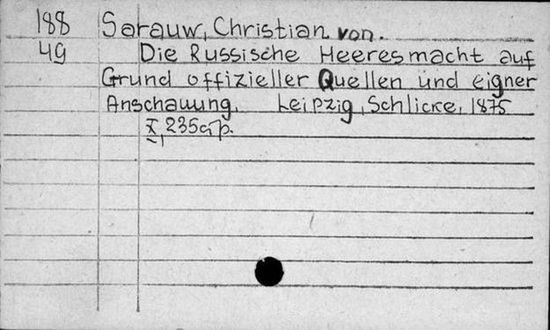 188 Sarauw, Christian von.
49 Die Russische Heeresmacht auf
Grund offizieller Quellen und eigner
Anschauung. Leipzig, Schlicke, 1875
X, 235 p.